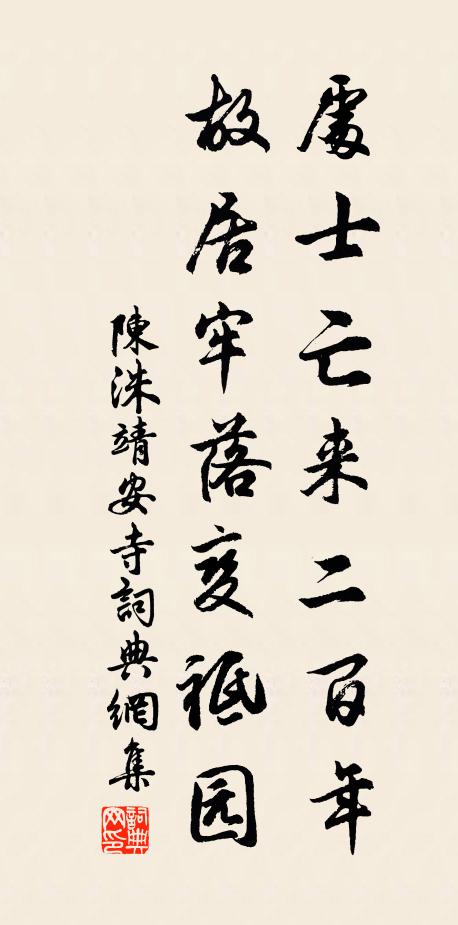 處士亡来二百年
故居牢落变祗园
陳洙靖安寺詞典網集
詞典网印